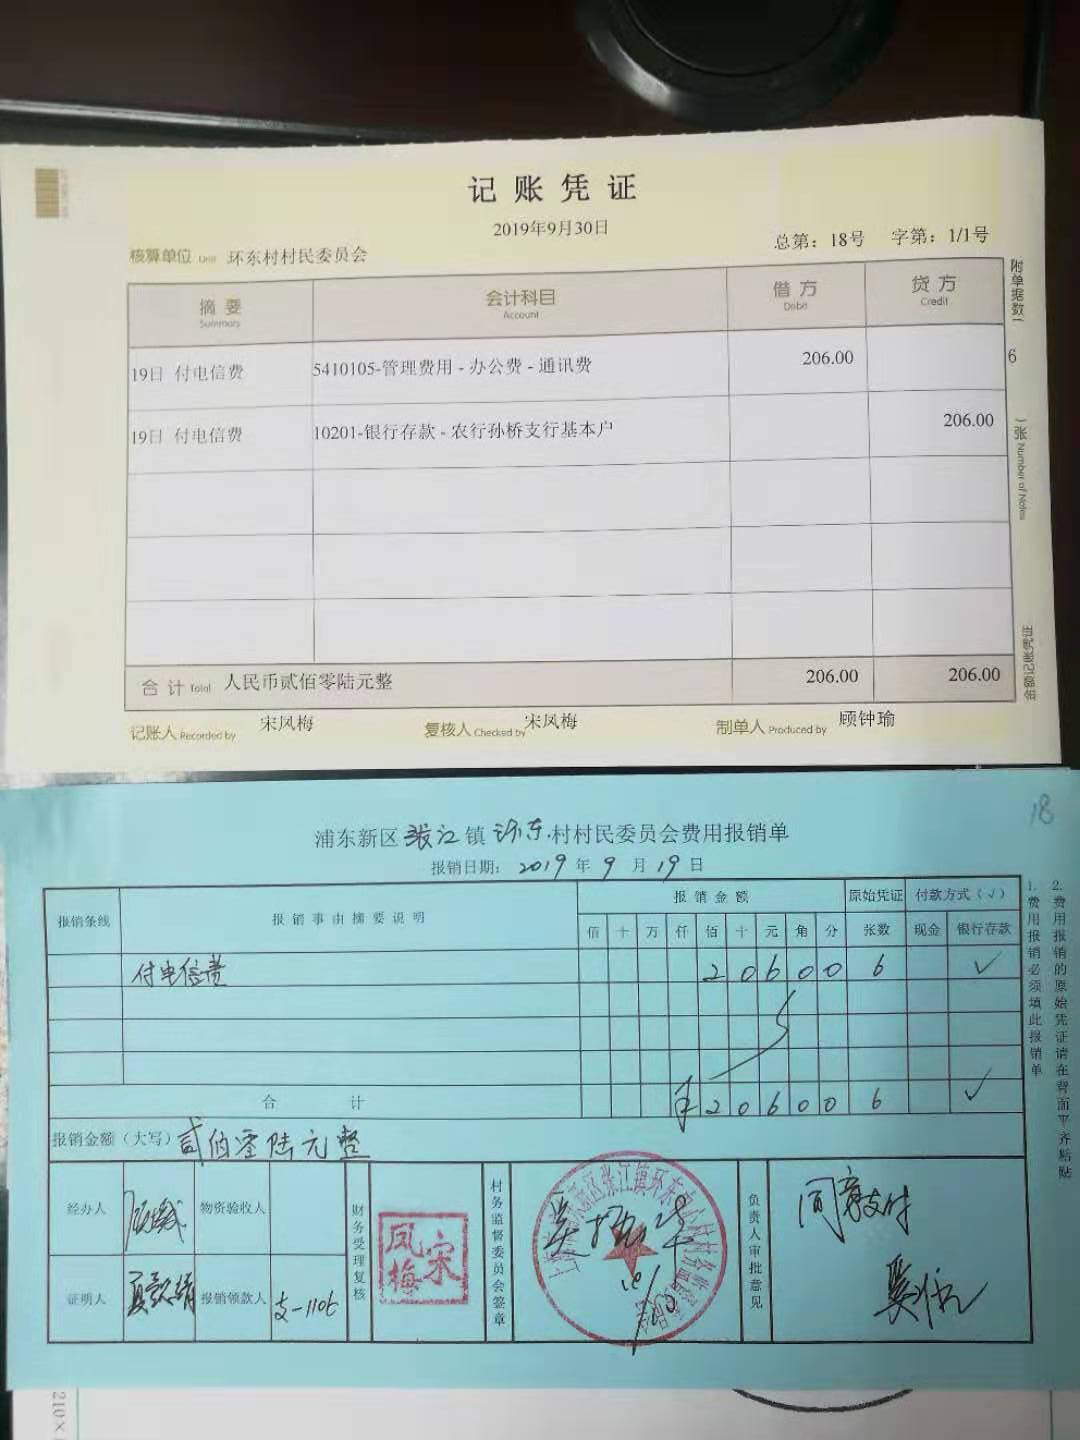 记账凭证
2019年9月30日
核算单位 Unit 环东村村民委员会 总第：18号 字第：1/1号
摘要 Summary 会计科目 Account 借方 Debit 贷方 Credit
19日 付电信费 5410105-管理费用 - 办公费 - 通讯费 206.00
19日 付电信费 10201-银行存款 - 农行孙桥支行基本户 206.00
合计 Total 人民币贰佰零陆元整 206.00 206.00
记账人 Recorded by 宋凤梅 复核人 Checked by 宋凤梅 制单人 Produced by 顾钟瑜
附单据数（ 6 ）张 Number of Notes
金额记账凭证
18
浦东新区张江镇环东村村民委员会费用报销单
报销日期： 2019 年 9 月 19 日
报销条线 报销事由摘要说明 报销金额 原始凭证 付款方式（√）
佰 十 万 仟 佰 十 元 角 分 张数 现金 银行存款
付电信费 2 0 6 0 0 6 ✓
合计 ¥ 2 0 6 0 0 6 ✓
报销金额（大写） 贰佰零陆元整
经办人 物资验收人
证明人 报销领款人 支-1106
财务受理复核
宋凤梅
村务监督委员会签章
负责人审批意见
同意支付
1.费用报销必须填此报销单
2.费用报销的原始凭证请在背面平齐粘贴
210×